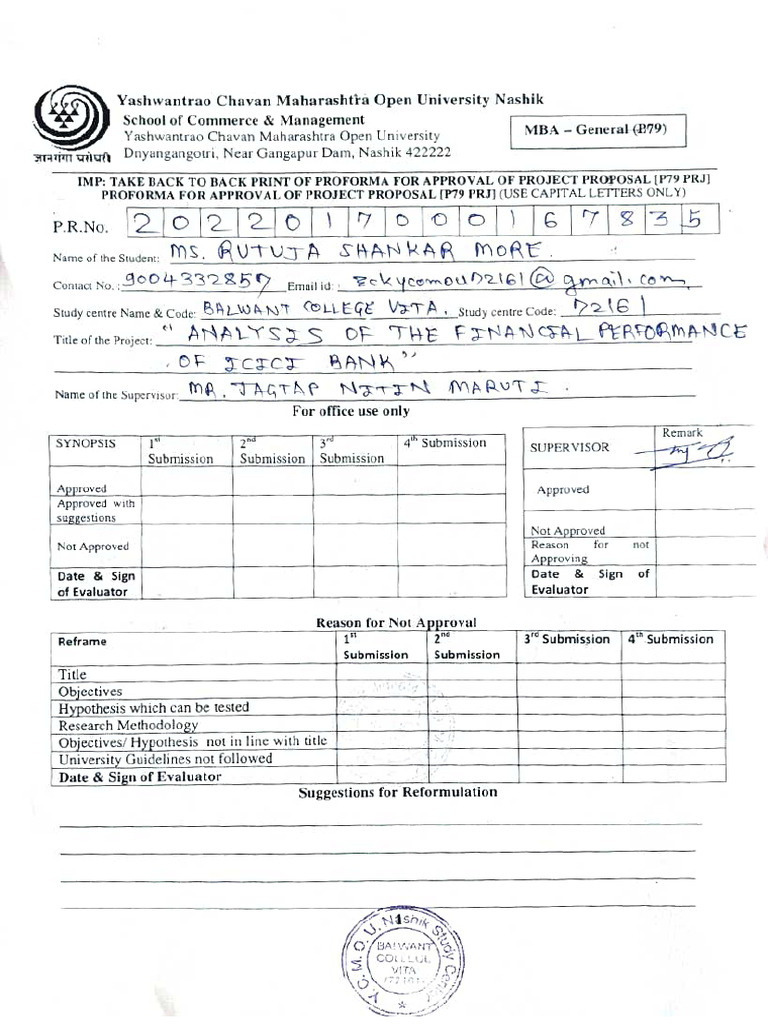 Yashwantrao Chavan Maharashtra Open University Nashik
School of Commerce & Management
Yashwantrao Chavan Maharashtra Open University
Dnyangangotri, Near Gangapur Dam, Nashik 422222
MBA – General (P79)
ज्ञानगंगा घरोघरी
IMP: TAKE BACK TO BACK PRINT OF PROFORMA FOR APPROVAL OF PROJECT PROPOSAL [P79 PRJ]
PROFORMA FOR APPROVAL OF PROJECT PROPOSAL [P79 PRJ] (USE CAPITAL LETTERS ONLY)
P.R.No. 2 0 2 2 0 1 7 0 0 0 1 6 7 8 3 5
Name of the Student: MS. RUTUJA SHANKAR MORE.
Contact No.: 9004332857 Email id: @gmail.com
Study centre Name & Code: BALWANT COLLEGE VITA. Study centre Code: 72161
Title of the Project: "ANALYSIS OF THE FINANCIAL PERFORMANCE
OF ICICI BANK"
Name of the Supervisor: MR. JAGTAP NITIN MARUTI.
For office use only
SYNOPSIS 1st Submission 2nd Submission 3rd Submission 4th Submission
Approved
Approved with suggestions
Not Approved
Date & Sign of Evaluator
SUPERVISOR Remark
Approved
Not Approved
Reason for not Approving
Date & Sign of Evaluator
Reason for Not Approval
Reframe 1st Submission 2nd Submission 3rd Submission 4th Submission
Title
Objectives
Hypothesis which can be tested
Research Methodology
Objectives/ Hypothesis not in line with title
University Guidelines not followed
Date & Sign of Evaluator
Suggestions for Reformulation
Y.C.M.O.U. Nashik Study Center
BALWANT
COLLEGE
VITA